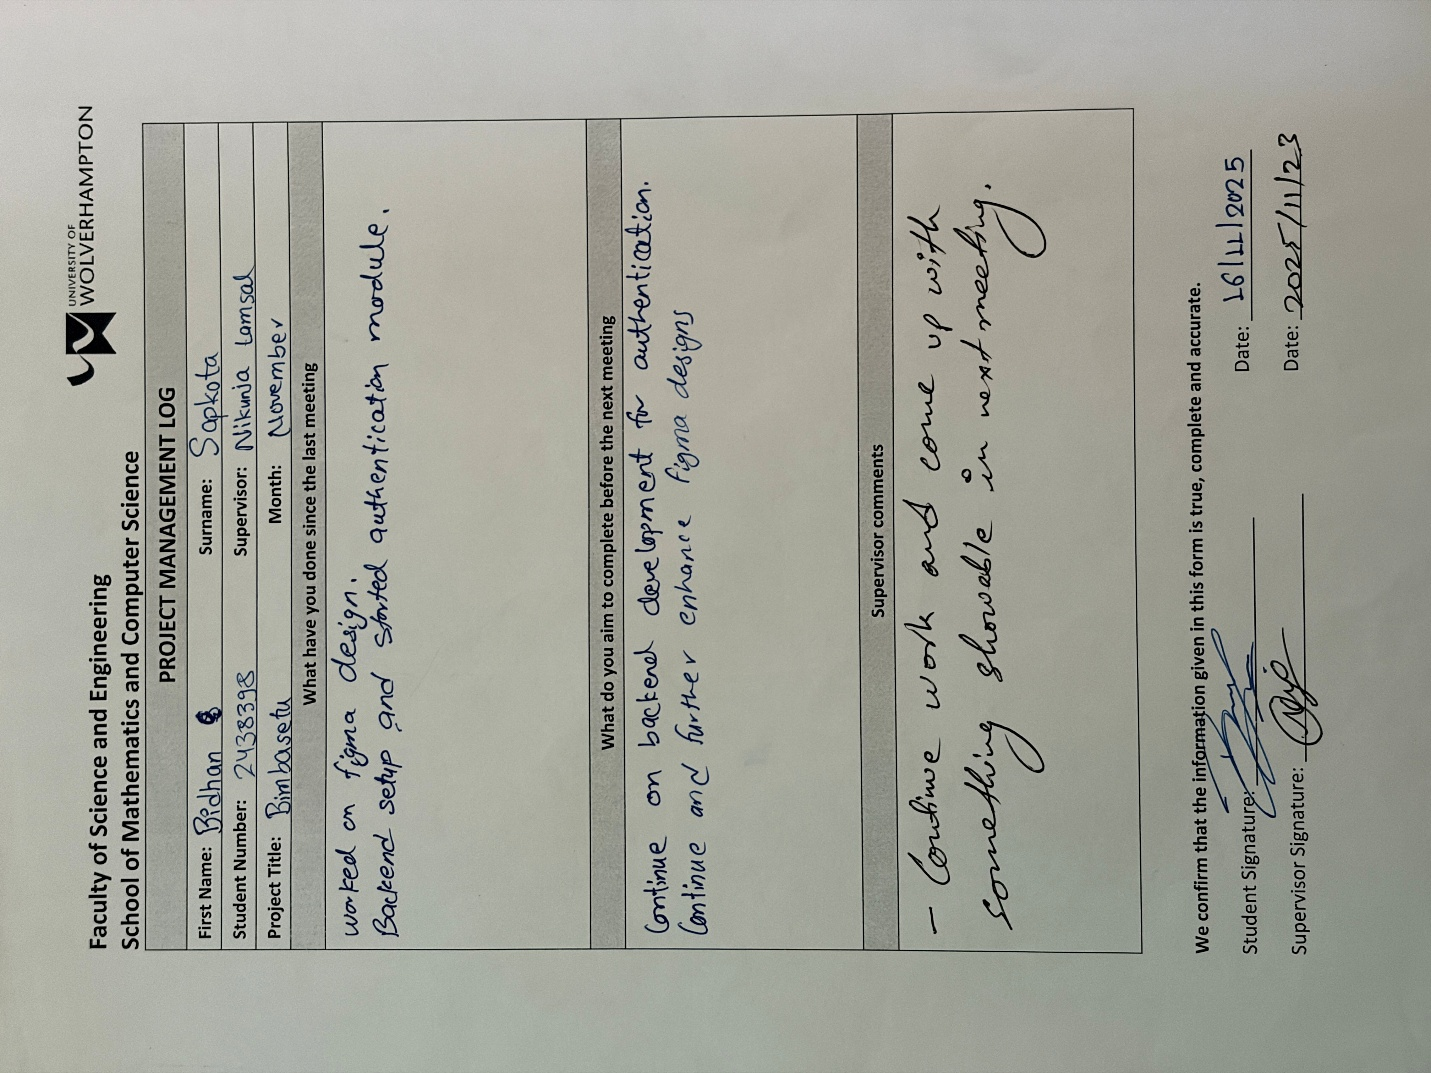 UNIVERSITY OF
WOLVERHAMPTON
Faculty of Science and Engineering
School of Mathematics and Computer Science
PROJECT MANAGEMENT LOG
First Name: Bidhan Surname: Sapkota
Student Number: 2438398 Supervisor: Nikunja Lamsal
Project Title: Bimbasetu Month: November
What have you done since the last meeting
worked on figma design.
Backend setup and started authentication module.
What do you aim to complete before the next meeting
Continue on backend development for authentication.
Continue and further enhance figma designs
Supervisor comments
- Continue work and come up with
something showable in next meeting.
We confirm that the information given in this form is true, complete and accurate.
Student Signature: Date: 16/11/2025
Supervisor Signature: Date: 2025/11/23